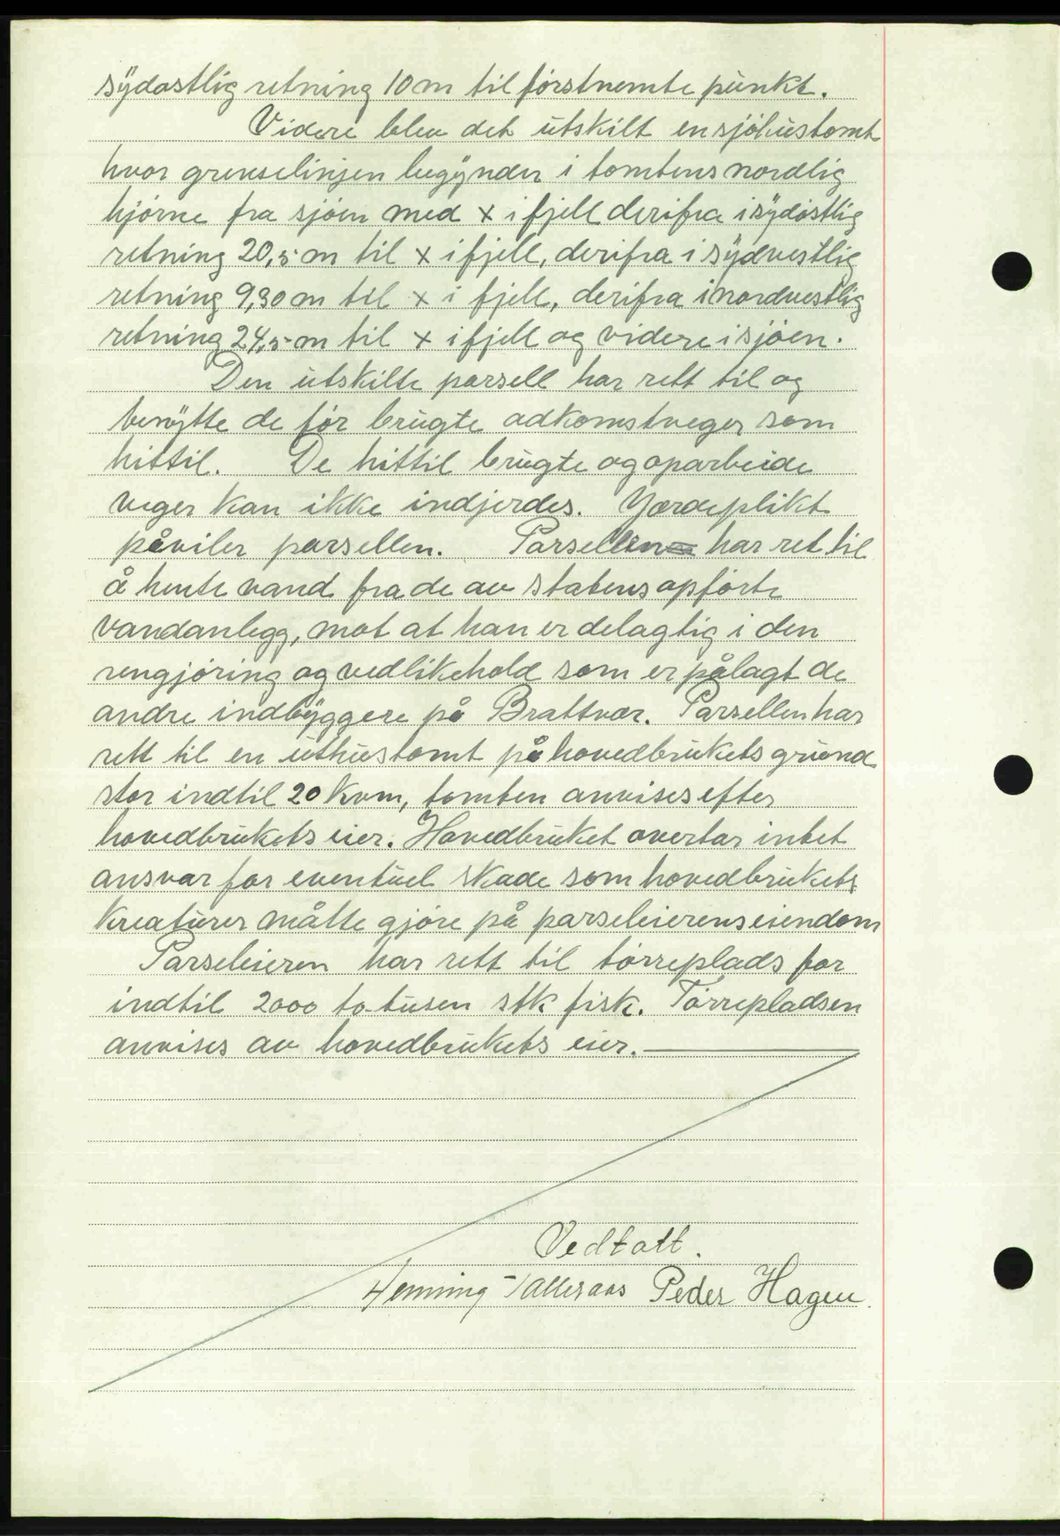 sydøstlig retning 10 m til førstnemte punkt.
Videre blev det utskilt en sjøhustomt
hvor grenselinjen begynder i tomtens nordlig
hjørne fra sjøen med x i fjell derifra i sydøstlig
retning 20,5 m til x i fjell, derifra i sydvestlig
retning 9,30 m til x i fjell, derifra i nordvestlig
retning 24,5 m til x i fjell og videre i sjøen.
Den utskilte parsell har rett til og
benytte de før brugte adkomstveger som
hittil. De hittil brugte og oparbeide
veger kan ikke indjerdes. Gjærdeplikt
påviler parsellen. Parsellen har ret til
å hente vand fra de av statens opførte
vandanlegg, mot at han er delagtig i den
rengjøring og vedlikehold som er pålagt de
andre indbyggere på Brattvær. Parsellen har
rett til en uthustomt på hovedbrukets grund
stor indtil 20 kvm, tomten anvises efter
hovedbrukets eier. Hovedbruket overtar intet
ansvar for eventuel skade som hovedbrukets
kreaturer måtte gjøre på parseleierens eiendom
Parseleieren har rett til tørreplads for
indtil 2000 to-tusen stk fisk. Tørrepladsen
anvises av hovedbrukets eier.
Vedtatt.
Henning Peder Hagen.